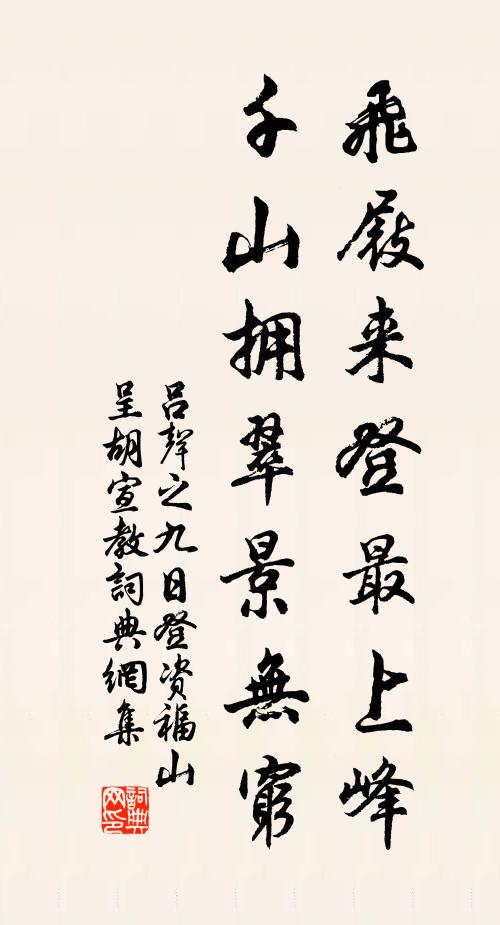 飛屐来登最上峰
千山拥翠景無窮
吕聲之九日登资福山
呈胡宣教詞典網集
詞典
网印